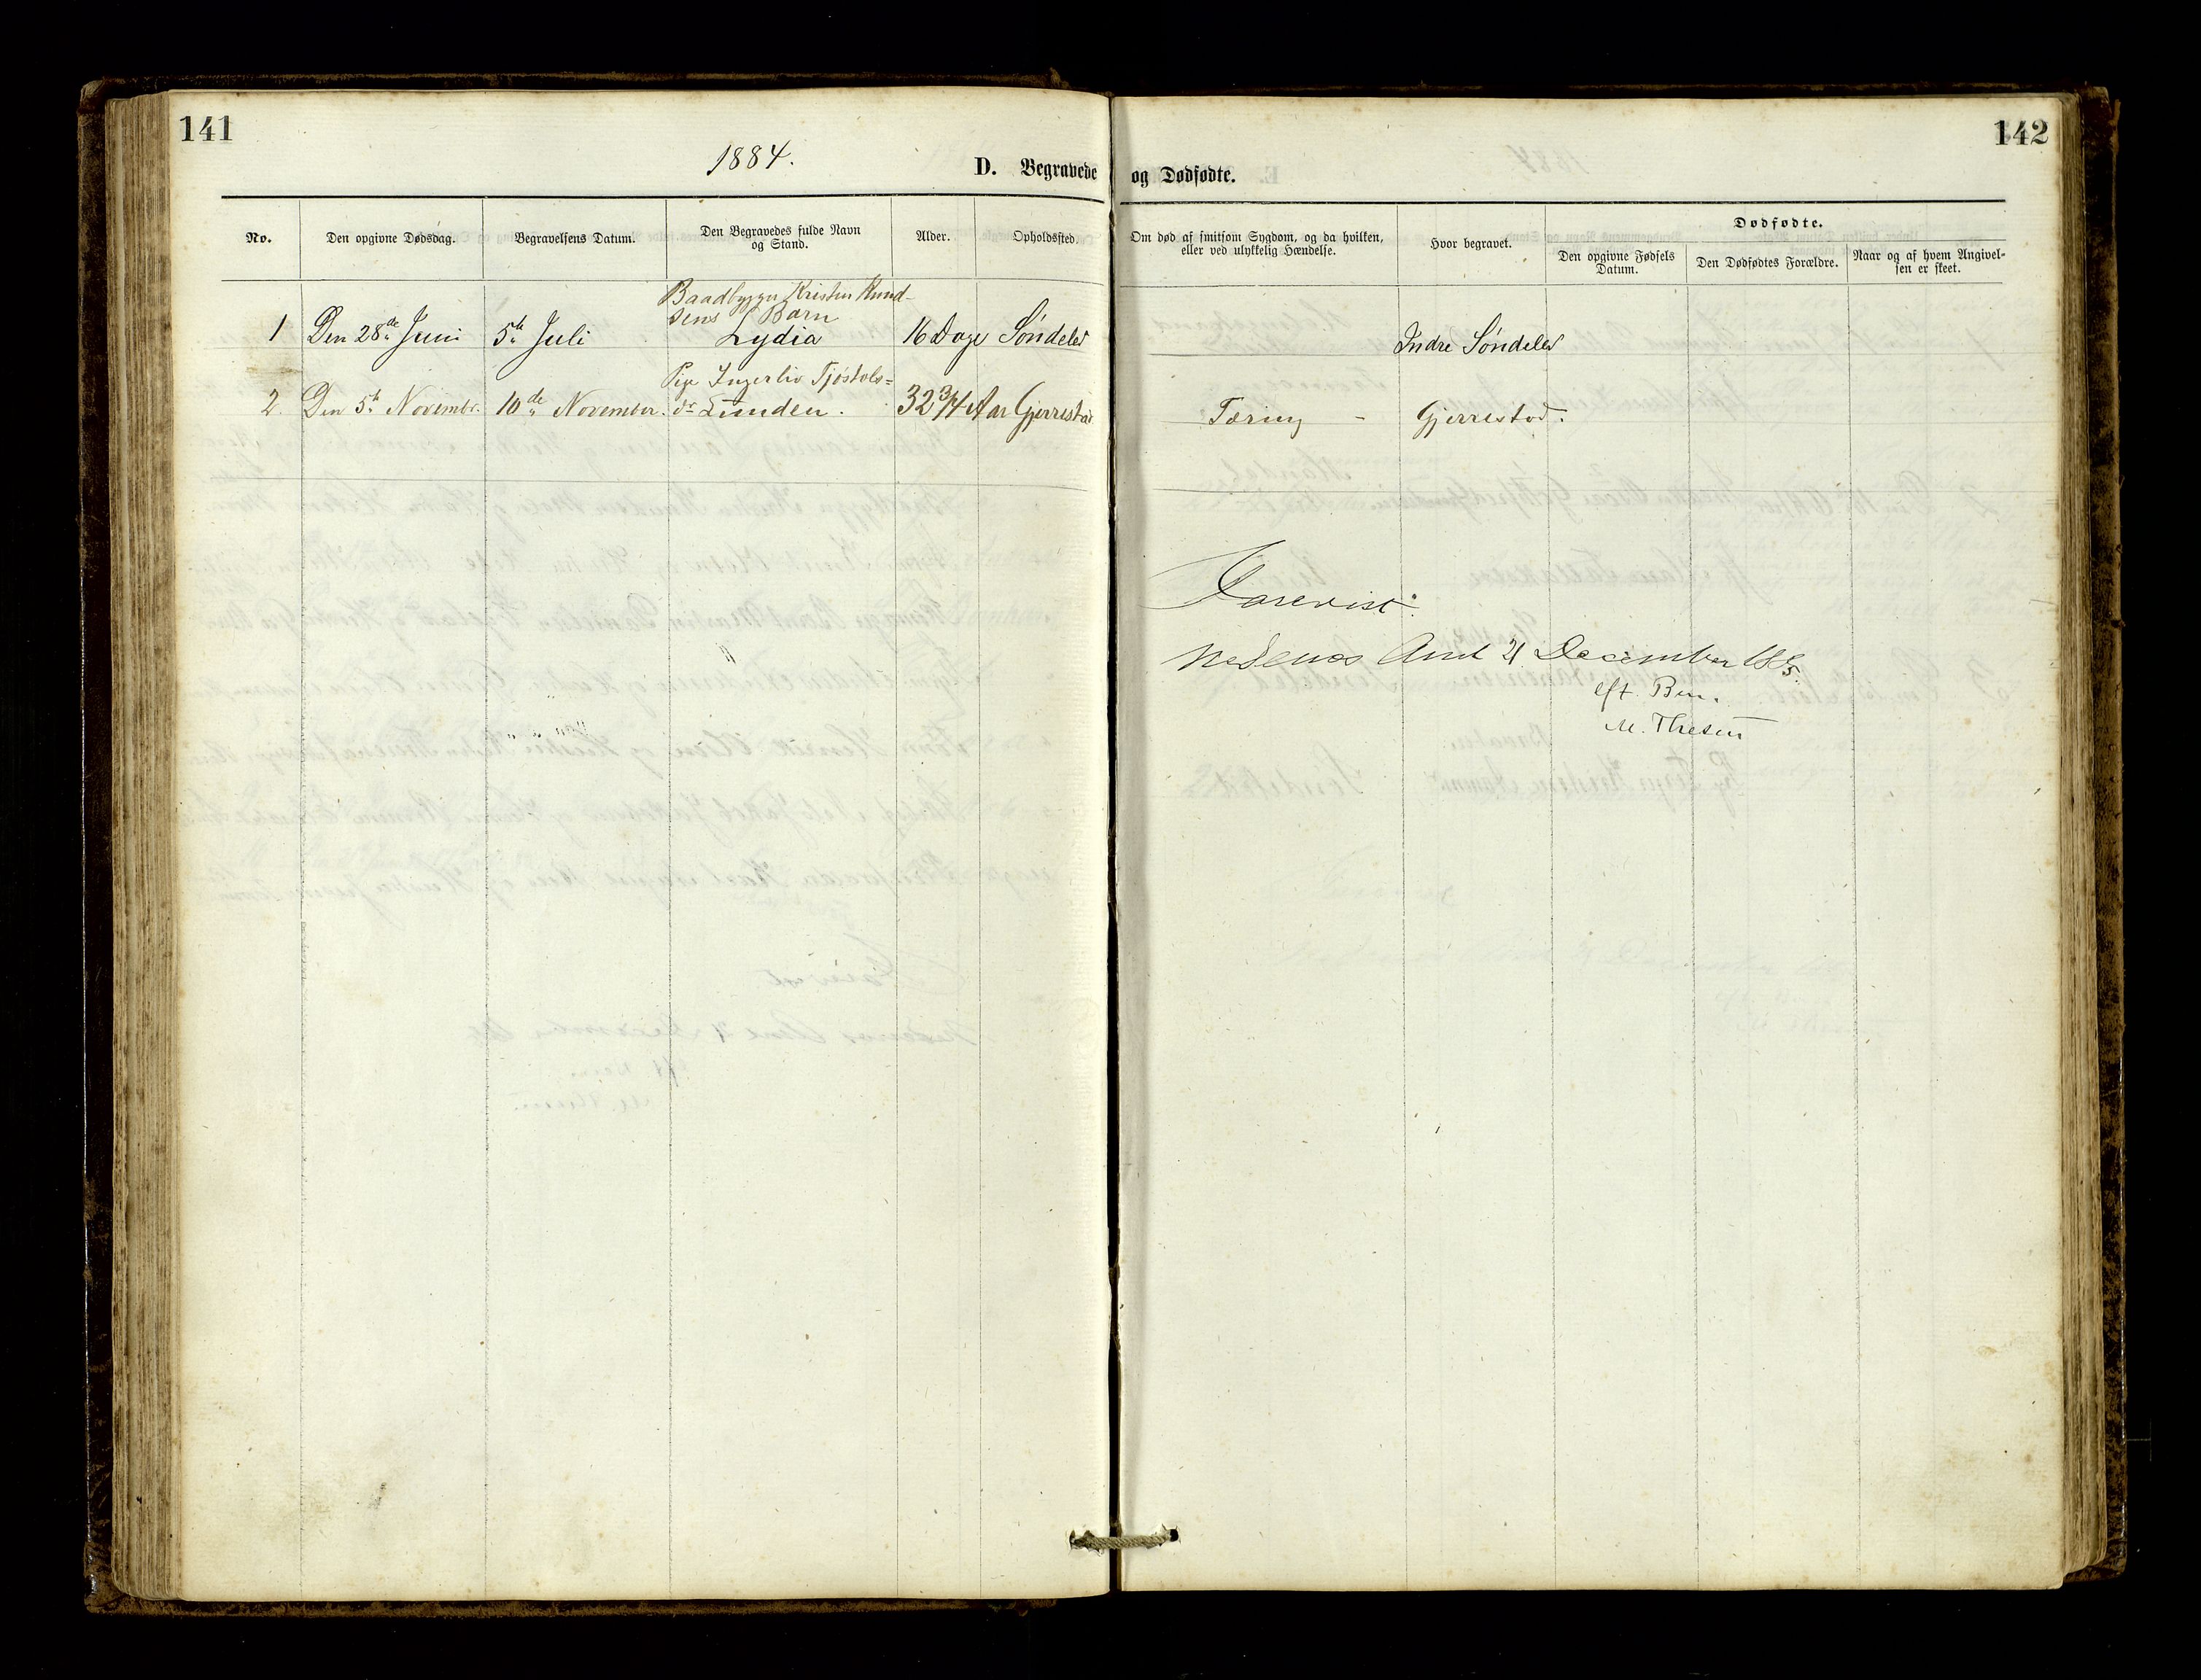 141
1884.
D. Begravede
No.
Den opgivne Dødsdag.
Begravelsens Datum.
Den Begravedes fulde Navn
og Stand.
Alder.
Opholdssted.
Baadbygger Kristen Knud-
sens Barn
1 Den 28de Juni 5te Juli Lydia 16 Dage Söndeled
Pige Ingerliv Tjöstols=
2. Den 5te Novembr. 10de November. dr Lunden. 32 3/4 Aar Gjerrestad
142
og Dødfødte.
Om død af smitsom Sygdom, og da hvilken,
eller ved ulykkelig Hændelse.
Hvor begravet.
Dødfødte.
Den opgivne Fødsels
Datum.
Den Dødfødtes Forældre.
Naar og af hvem Angivel-
sen er skeet.
Indre Söndeled
Tæring - Gjerrestad.
Forevist.
Nedenes Amt 21 December 1885.
eft. Bem.
M. Thesen